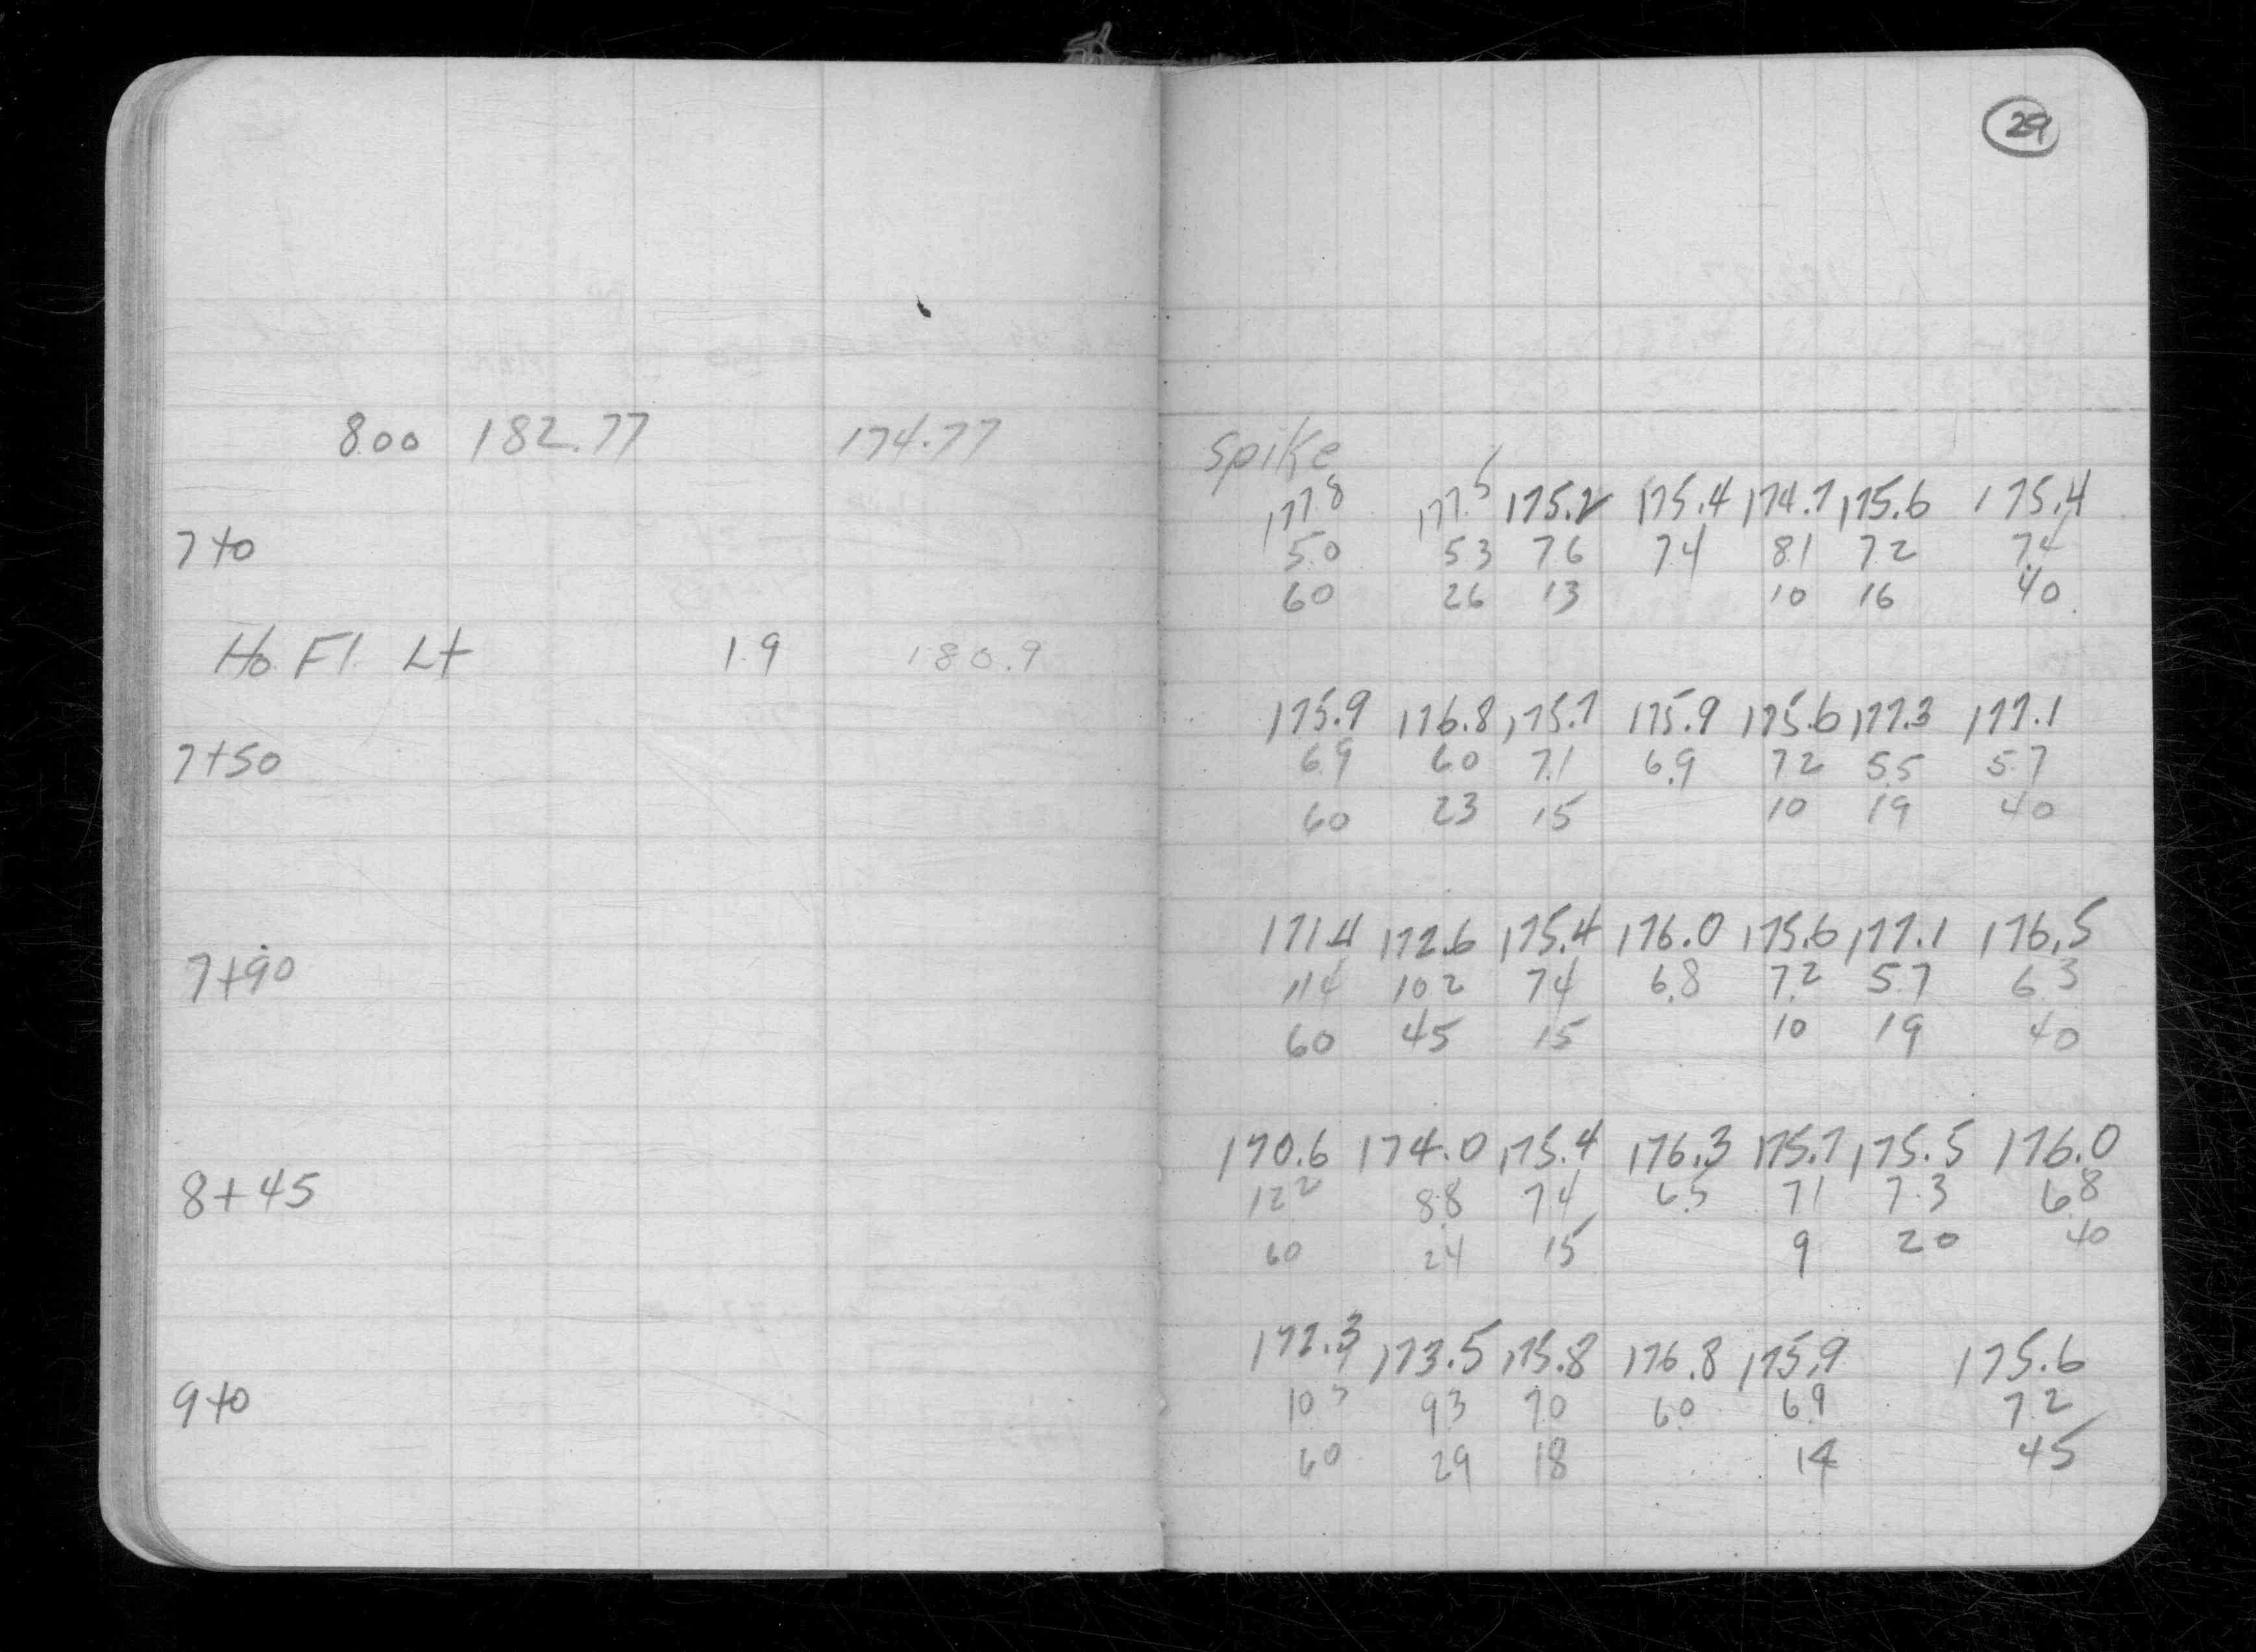 29
8.00 182.77 174.77 Spike
177.8 177.5 175.2 175.4 174.7 175.6 175.4
7+0 5.0 5.3 7.6 7.4 8.1 7.2 7.4
60 26 13 10 16 40
Ho. Fl. Lt 1.9 180.9
175.9 176.8 175.7 175.9 175.6 177.3 177.1
7+50 6.9 6.0 7.1 6.9 7.2 5.5 5.7
60 23 15 10 19 40
171.4 172.6 175.4 176.0 175.6 177.1 176.5
7+90 11.4 10.2 7.4 6.8 7.2 5.7 6.3
60 45 15 10 19 40
170.6 174.0 175.4 176.3 175.7 175.5 176.0
8+45 12.2 8.8 7.4 6.5 7.1 7.3 6.8
60 24 15 9 20 40
172.3 173.5 175.8 176.8 175.9 175.6
9+0 10.5 9.3 7.0 6.0 6.9 7.2
60 29 18 14 45